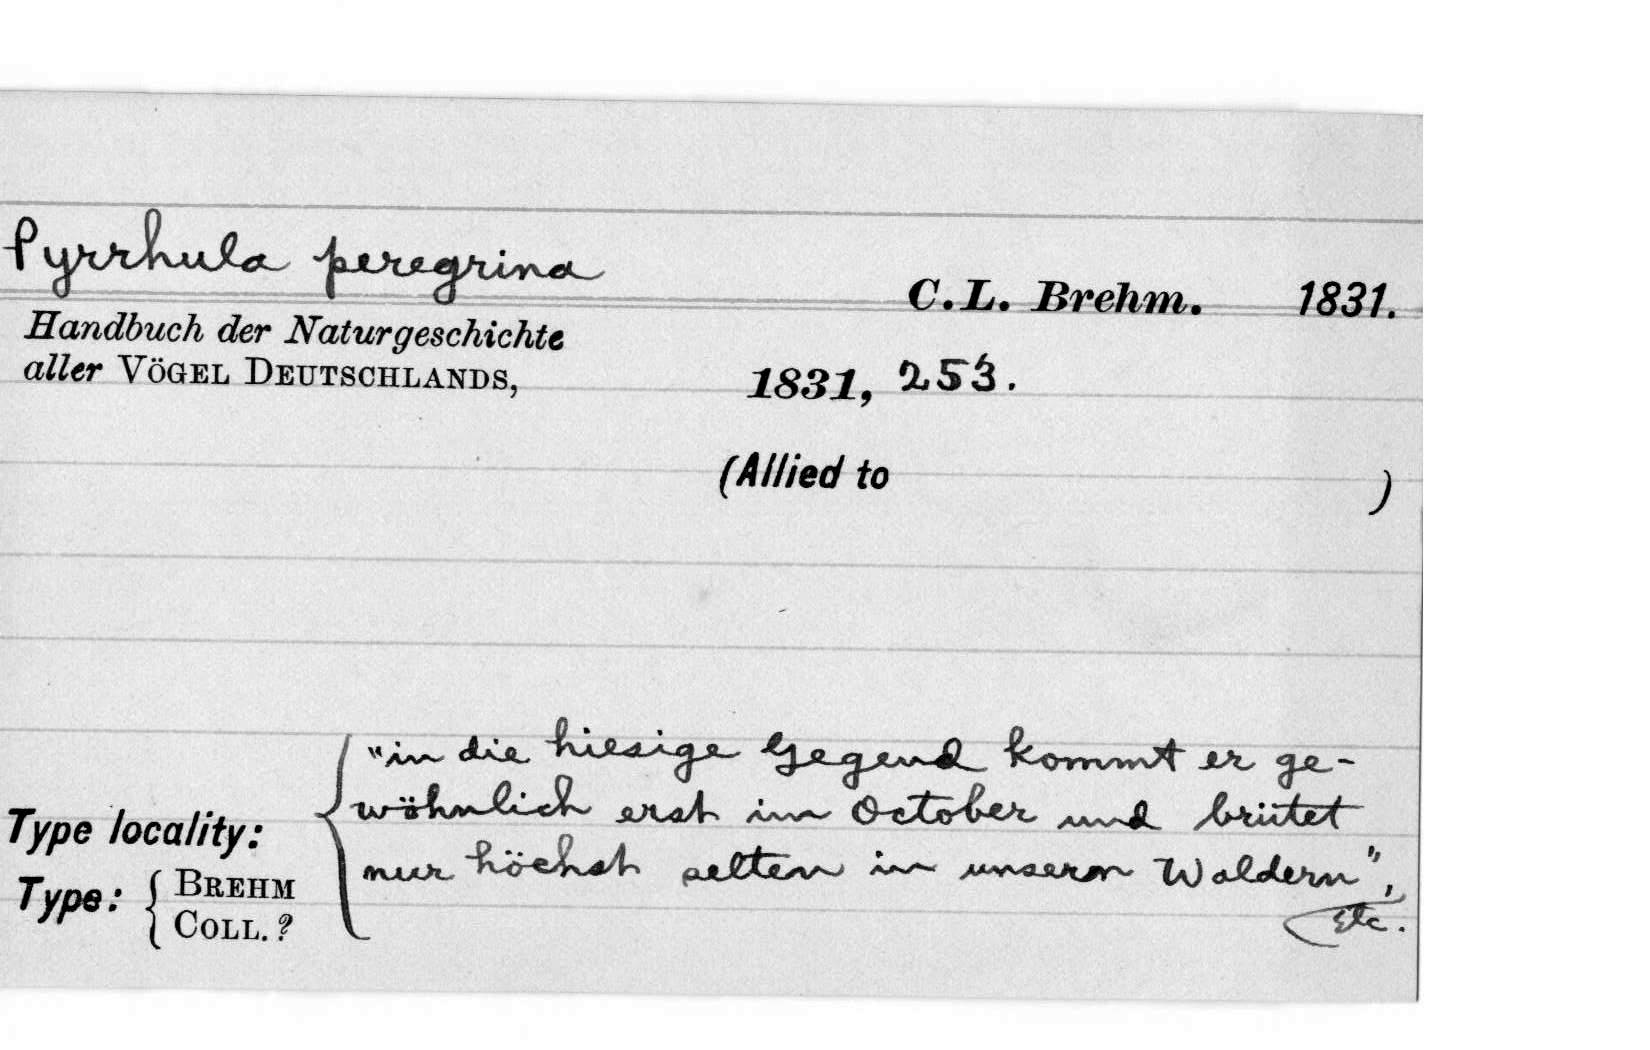 Pyrrhula peregrina
C. L. Brehm. 1831.
Handbuch der Naturgeschichte
aller VÖGEL DEUTSCHLANDS,
1831, 253.
(Allied to )
"in die hiesige Gegend kommt er ge-
wöhnlich erst im October und brütet
Type locality:
nur höchst selten in unsern Waldern",
Type: { BREHM
COLL. ?
Etc.